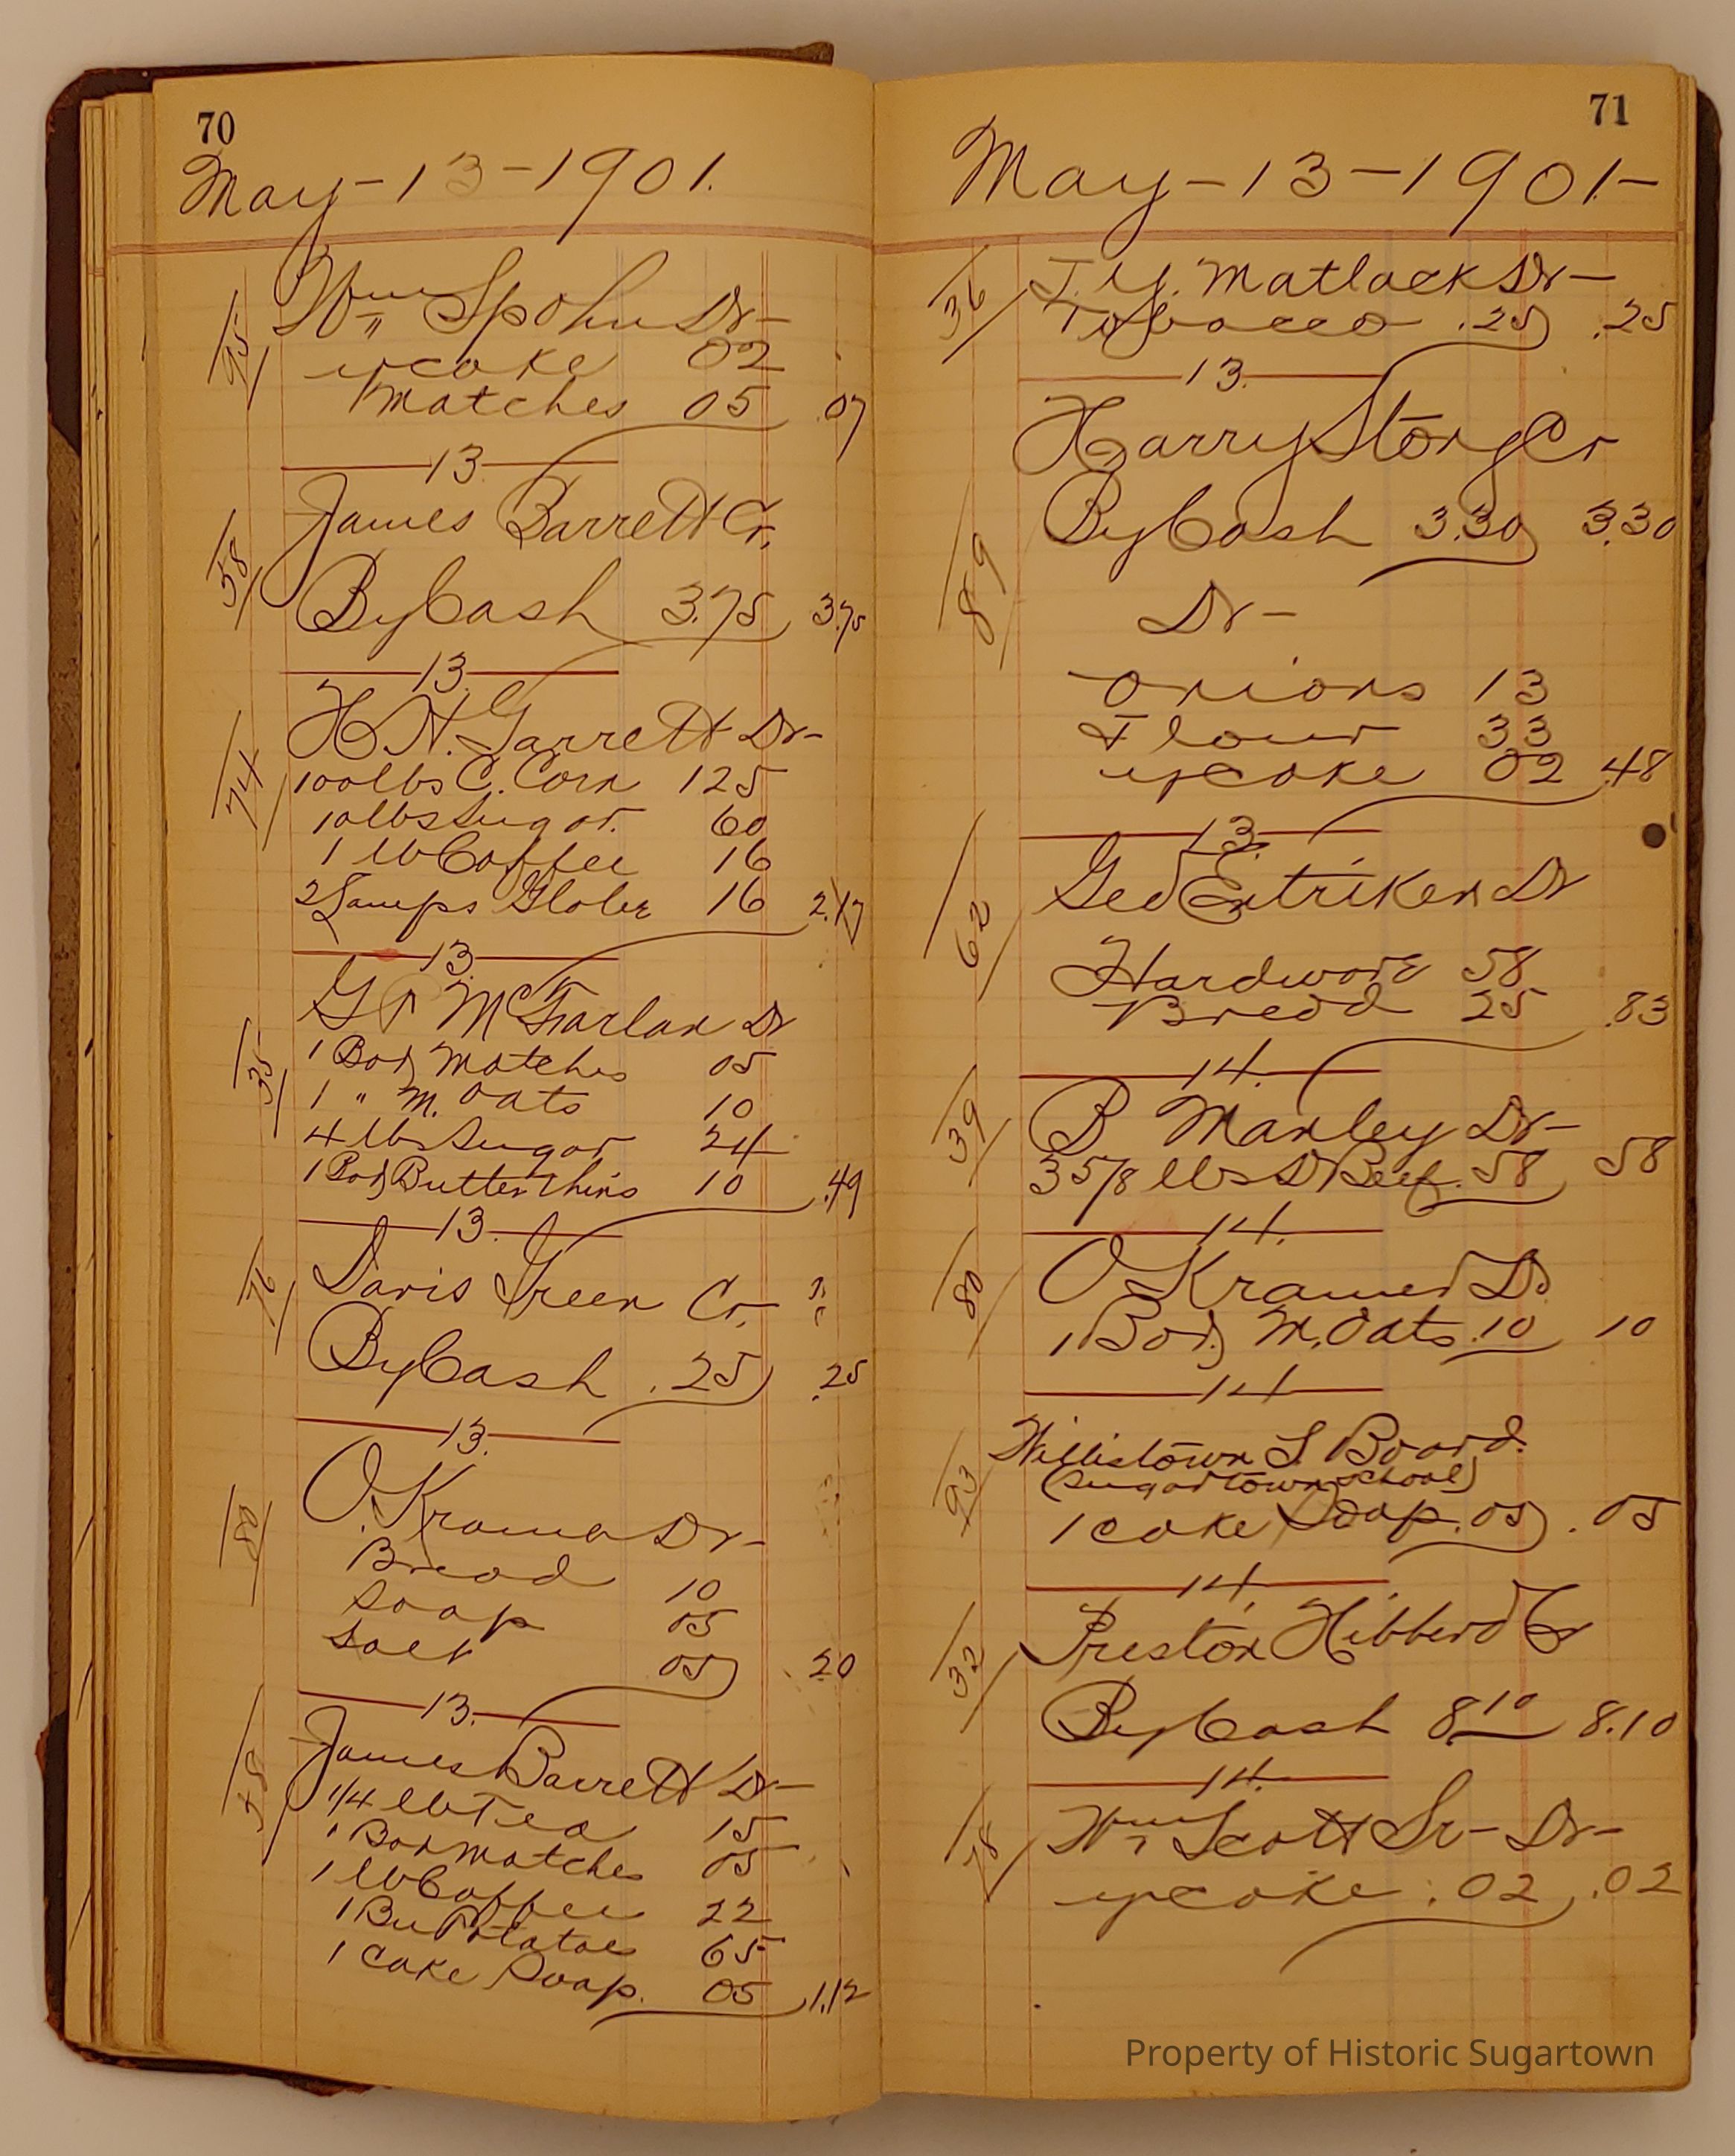 70
May-13-1901.
95
Wm Spohn Dr-
ycake 02
Matches 05 .07
13
58
James Barrett Cr,
By Cash 3.75 3.75
13.
74
H.H. Garrett Dr-
100lbs C. Corn 125
10lbs Sugar. 60
1 lb Coffee 16
2 Lamps Globe 16 2.17
13.
35
G P McFarlan Dr
1 Box Matches 05
1 " M. Oats 10
4 lbs Sugar 24
1 Box Butter thins 10 .49
13.
76
Davis Green Cr.
By Cash .25 .25
13.
80
O. Kramer Dr-
Bread 10
Soap 05
Salt 05 .20
13.
58
James Barrett Dr-
1/4 lb Tea 15
1 Box Matches 05
1 lb Coffee 22
1 Bu Potatoes 65
1 Cake Soap. 05 1.12
71
May-13-1901-
36
J. Y. Matlack Dr-
Tobacco .25 .25
13.
Harry Stong Cr
By Cash 3.30 3.30
89
Dr-
Onions 13
Flour 33
ycake 02 .48
13.
62
Geo Entriken Dr
Hardware 58
Bread 25 .83
14.
39
B Manley Dr-
3 5/8 lbs D Beef. 58 58
14.
80
O Kramer Dr
1 Box M. Oats .10 10
14
93
Willistown S Board.
(Sugartown School)
1 cake Soap .05 .05
14
32
Preston Hibberd Cr
By Cash 8.10 8.10
14.
78
Wm Scott Sr- Dr-
ycake .02 .02
Property of Historic Sugartown